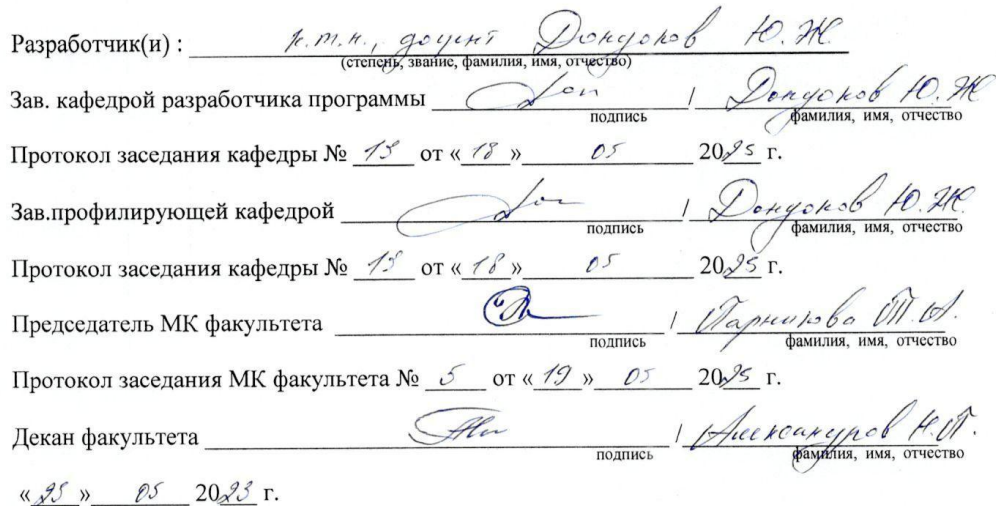 Разработчик(и) : к.т.н., доцент Дондоков Ю.Ж.
(степень, звание, фамилия, имя, отчество)
Зав. кафедрой разработчика программы / Дондоков Ю.Ж
подпись фамилия, имя, отчество
Протокол заседания кафедры № 13 от « 18 » 05 20 г.
Зав.профилирующей кафедрой / Дондоков Ю.Ж.
подпись фамилия, имя, отчество
Протокол заседания кафедры № 13 от « 18 » 05 20 г.
Председатель МК факультета / Парникова Т.А.
подпись фамилия, имя, отчество
Протокол заседания МК факультета № 5 от « 19 » 05 20 г.
Декан факультета / Александров Н.П.
подпись фамилия, имя, отчество
« 23 » 05 2023 г.